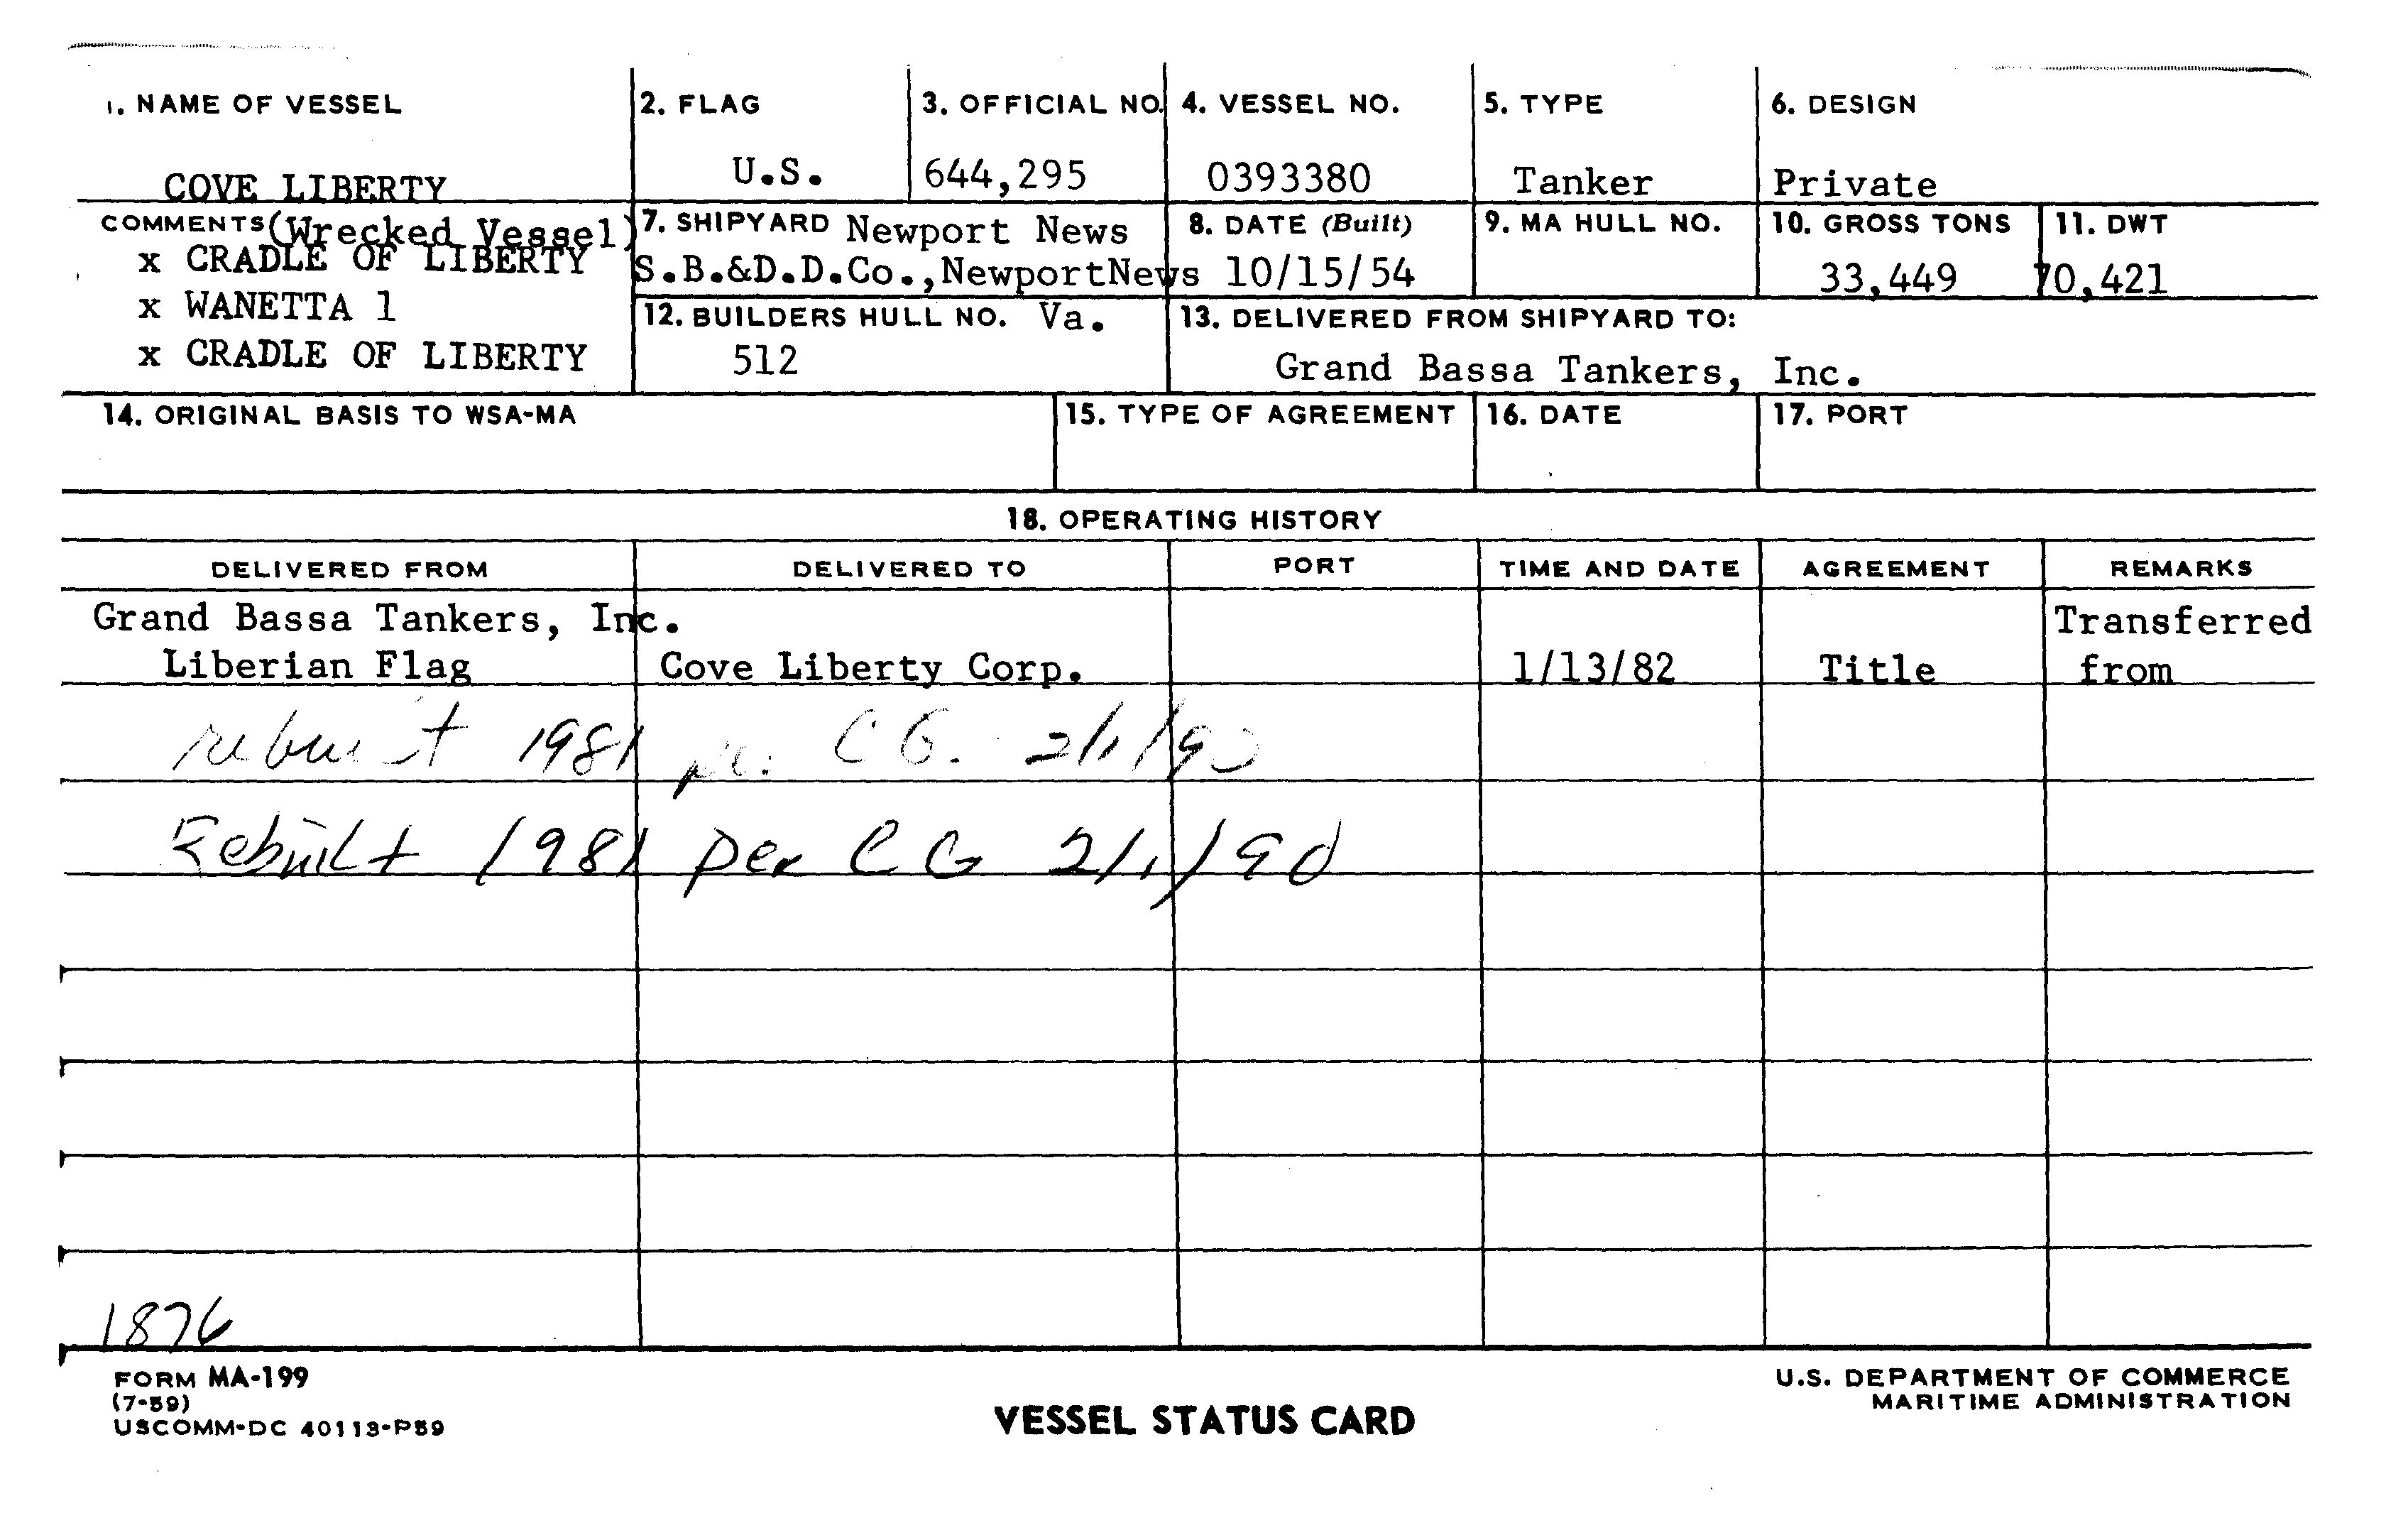 1. NAME OF VESSEL 2. FLAG 3. OFFICIAL NO. 4. VESSEL NO. 5. TYPE 6. DESIGN
COVE LIBERTY U.S. 644,295 0393380 Tanker Private
COMMENTS (Wrecked Vessel) 7. SHIPYARD Newport News 8. DATE (Built) 9. MA HULL NO. 10. GROSS TONS 11. DWT
x CRADLE OF LIBERTY S.B.&D.D.Co.,NewportNews 10/15/54 33,449 70,421
x WANETTA 1 12. BUILDERS HULL NO. Va. 13. DELIVERED FROM SHIPYARD TO:
x CRADLE OF LIBERTY 512 Grand Bassa Tankers, Inc.
14. ORIGINAL BASIS TO WSA-MA 15. TYPE OF AGREEMENT 16. DATE 17. PORT
18. OPERATING HISTORY
DELIVERED FROM DELIVERED TO PORT TIME AND DATE AGREEMENT REMARKS
Grand Bassa Tankers, Inc. Transferred
Liberian Flag Cove Liberty Corp. 1/13/82 Title from
rebuilt 1981 per CG. 2/1/90
Rebuilt 1981 per CG 2/1/90
1876
FORM MA-199 U.S. DEPARTMENT OF COMMERCE
(7-59) MARITIME ADMINISTRATION
USCOMM-DC 40113-P59 VESSEL STATUS CARD